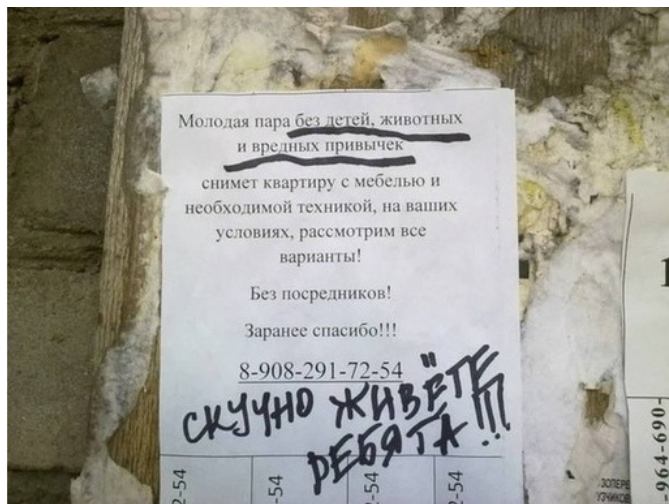 Молодая пара без детей, животных
и вредных привычек
снимет квартиру с мебелью и
необходимой техникой, на ваших
условиях, рассмотрим все
варианты!
Без посредников!
Заранее спасибо!!!
8-908-291-72-54
СКУЧНО ЖИВЁТЕ
РЕБЯТА!!!
2-54
-54
-54
-54
1
964-690-